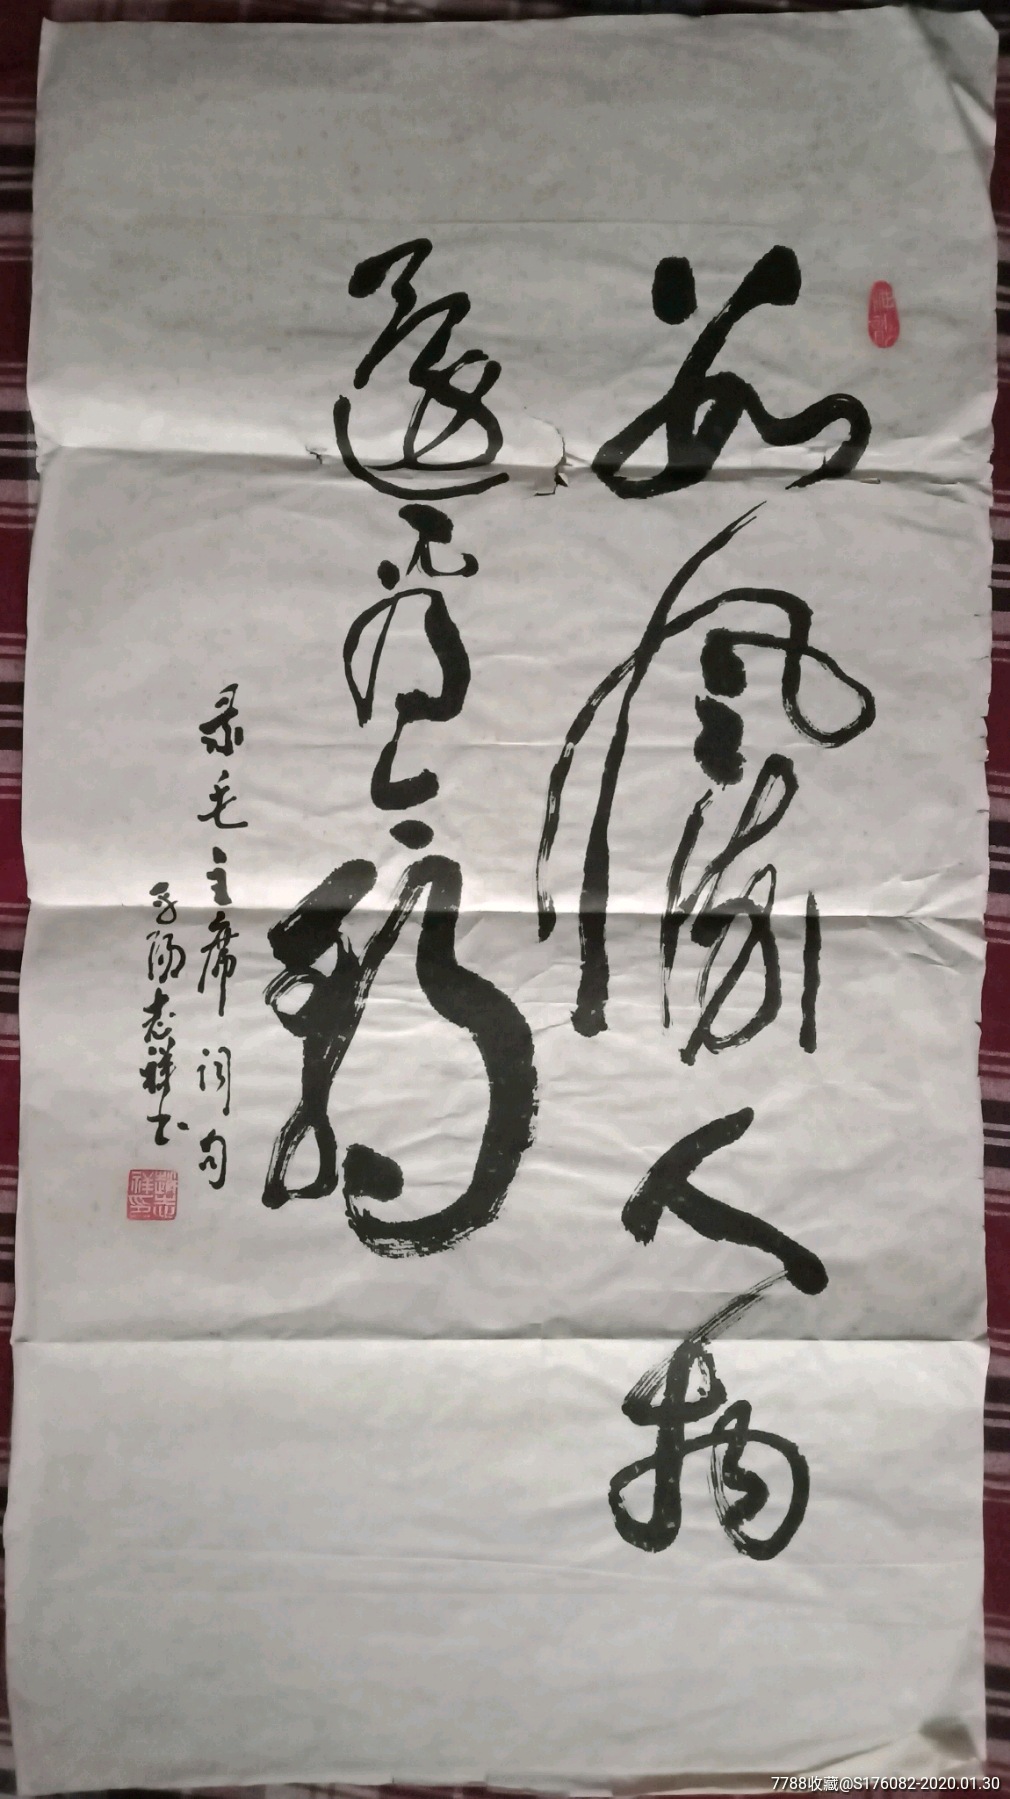 数風流人物
還看今朝
录毛主席词句
阳志祥书
趙志祥印
7788收藏@S176082-2020.01.30